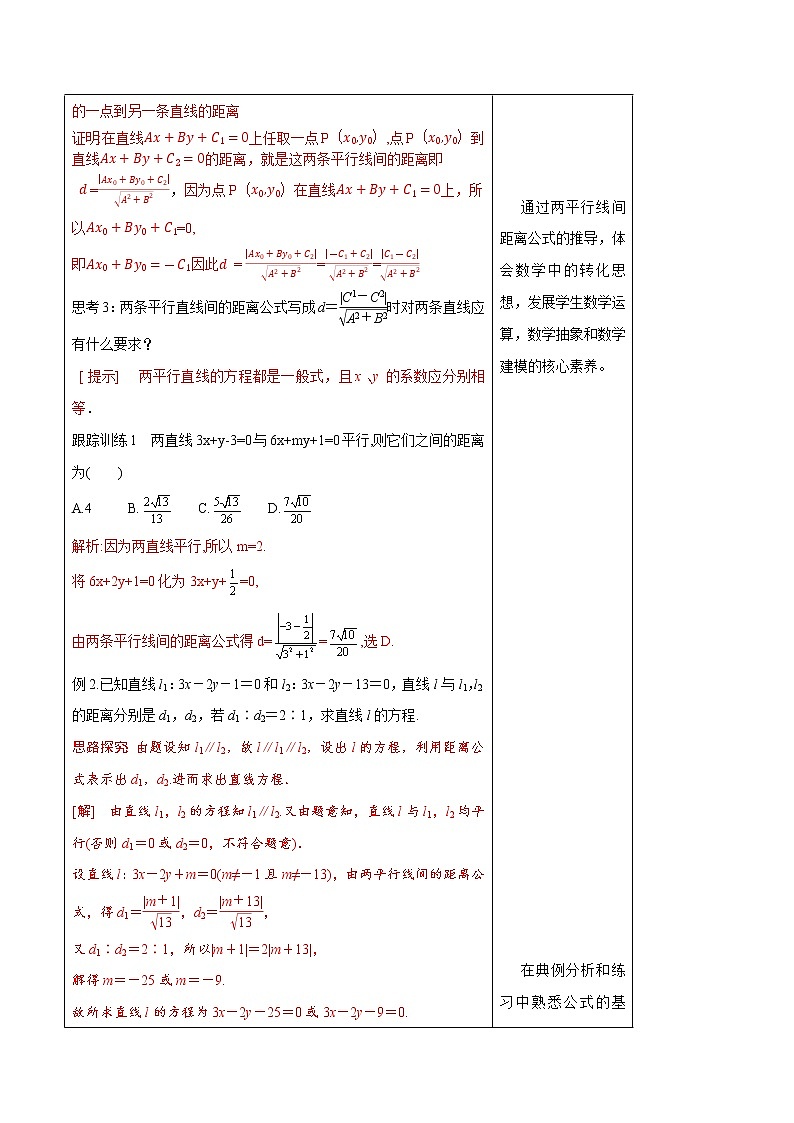 的一点到另一条直线的距离
证明:在直线Ax+By+C₁=0上任取一点P（x₀,y₀）,点P（x₀,y₀）到
直线Ax+By+C₂=0的距离，就是这两条平行线间的距离即
d=|Ax₀+By₀+C₂|/√(A²+B²)，因为点P（x₀,y₀）在直线Ax+By+C₁=0上，所
以Ax₀+By₀+C₁=0,
即Ax₀+By₀=-C₁因此d =|Ax₀+By₀+C₂|/√(A²+B²)=|-C₁+C₂|/√(A²+B²)=|C₁-C₂|/√(A²+B²)
思考3:两条平行直线间的距离公式写成d=|C1-C2|/√(A²+B²)时对两条直线应
有什么要求?
[提示]　两平行直线的方程都是一般式，且x、y 的系数应分别相
等．
跟踪训练1　两直线3x+y-3=0与6x+my+1=0平行,则它们之间的距离
为(　　)
A.4　B. 2√13/13　C. 5√13/26　D. 7√10/20
解析:因为两直线平行,所以m=2.
将6x+2y+1=0化为3x+y+1/2=0,
由两条平行线间的距离公式得d=|-3-1/2|/√(3²+1²)=7√10/20,选D.
例2.已知直线l₁：3x－2y－1＝0和l₂：3x－2y－13＝0，直线l与l₁,l₂
的距离分别是d₁，d₂，若d₁∶d₂＝2∶1，求直线l的方程.
思路探究:由题设知l₁∥l₂，故l∥l₁∥l₂，设出l的方程，利用距离公
式表示出d₁，d₂.进而求出直线方程．
[解]　由直线l₁，l₂的方程知l₁∥l₂.又由题意知，直线l与l₁，l₂均平
行(否则d₁＝0或d₂＝0，不符合题意)．
设直线l：3x－2y＋m＝0(m≠－1且m≠－13)，由两平行线间的距离公
式，得d₁＝|m＋1|/√13，d₂＝|m＋13|/√13，
又d₁∶d₂＝2∶1，所以|m＋1|＝2|m＋13|，
解得m＝－25或m＝－9.
故所求直线l的方程为3x－2y－25＝0或3x－2y－9＝0.
通过两平行线间
距离公式的推导，体
会数学中的转化思
想，发展学生数学运
算，数学抽象和数学
建模的核心素养。
在典例分析和练
习中熟悉公式的基